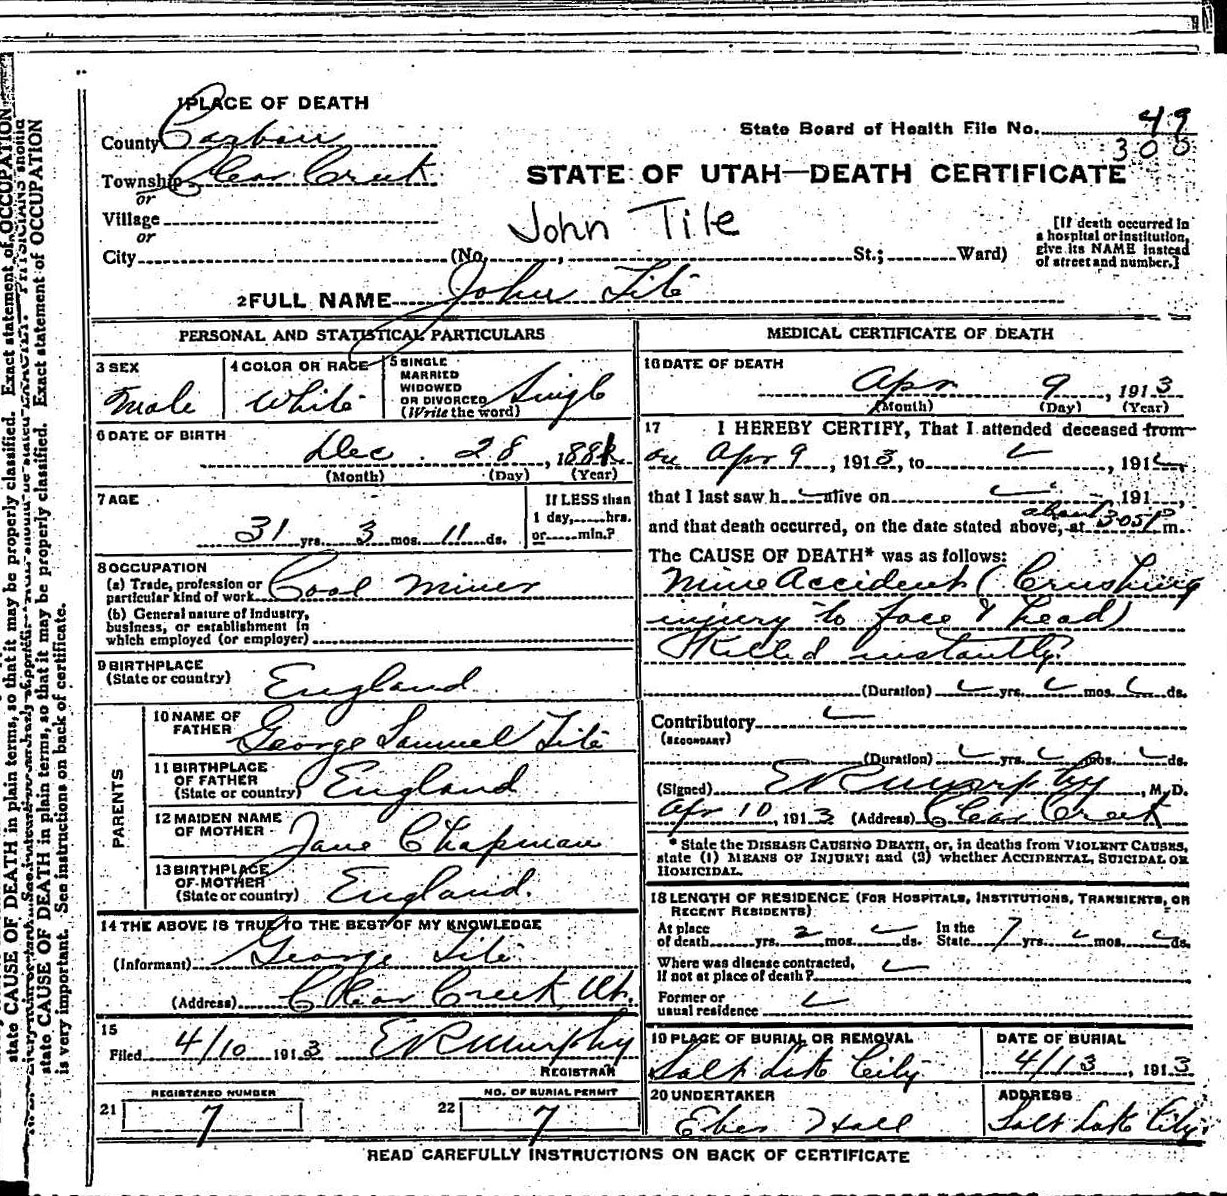 1 PLACE OF DEATH
County Carbon
State Board of Health File No. 49
300
Township Clear Creek
or
STATE OF UTAH—DEATH CERTIFICATE
Village
or
John Tite
[If death occurred in
a hospital or institution,
give its NAME instead
of street and number.]
City (No. , St.; Ward)
2 FULL NAME John Tite
PERSONAL AND STATISTICAL PARTICULARS
3 SEX
Male
4 COLOR OR RACE
White
5 SINGLE
MARRIED
WIDOWED
OR DIVORCED
(Write the word)
Single
6 DATE OF BIRTH
Dec. 28, 1881
(Month) (Day) (Year)
7 AGE
31 yrs. 3 mos. 11 ds.
If LESS than
1 day, hrs.
or min.?
8 OCCUPATION
(a) Trade, profession or
particular kind of work Coal Miner
(b) General nature of Industry,
business, or establishment in
which employed (or employer)
9 BIRTHPLACE
(State or country)
England
PARENTS
10 NAME OF
FATHER
George Samuel Tite
11 BIRTHPLACE
OF FATHER
(State or country)
England
12 MAIDEN NAME
OF MOTHER
Jane Chapman
13 BIRTHPLACE
OF MOTHER
(State or country)
England.
14 THE ABOVE IS TRUE TO THE BEST OF MY KNOWLEDGE
(Informant) George Tite
(Address) Clear Creek, Ut.
15
Filed 4/10 1913 E R Murphy
REGISTRAR
REGISTERED NUMBER
21 7
NO. OF BURIAL PERMIT
22 7
MEDICAL CERTIFICATE OF DEATH
16 DATE OF DEATH
Apr 9, 1913
(Month) (Day) (Year)
17 I HEREBY CERTIFY, That I attended deceased from
on Apr 9, 1913, to , 191
that I last saw h alive on 191 ,
about
and that death occurred, on the date stated above, at 3:05 P m.
The CAUSE OF DEATH* was as follows:
Mine Accident (Crushing
injury to face & head)
Killed instantly.
(Duration) yrs. mos. ds.
Contributory
(SECONDARY)
(Duration) yrs. mos. ds.
(Signed) E R Murphy, M. D.
Apr 10, 1913 (Address) Clear Creek
* State the DISEASE CAUSING DEATH, or, in deaths from VIOLENT CAUSES,
state (1) MEANS OF INJURY; and (2) whether ACCIDENTAL, SUICIDAL OR
HOMICIDAL.
18 LENGTH OF RESIDENCE (FOR HOSPITALS, INSTITUTIONS, TRANSIENTS, OR
RECENT RESIDENTS)
At place
of death yrs. 2 mos. ds.
In the
State 7 yrs. mos. ds.
Where was disease contracted,
If not at place of death?
Former or
usual residence
19 PLACE OF BURIAL OR REMOVAL
Salt Lake City
DATE OF BURIAL
4/13, 1913
20 UNDERTAKER
Eber Hall
ADDRESS
Salt Lake City.
READ CAREFULLY INSTRUCTIONS ON BACK OF CERTIFICATE
state CAUSE OF DEATH in plain terms, so that it may be properly classified. Exact statement of OCCUPATION
state CAUSE OF DEATH in plain terms, so that it may be properly classified. Exact statement of OCCUPATION
is very important. See instructions on back of certificate.